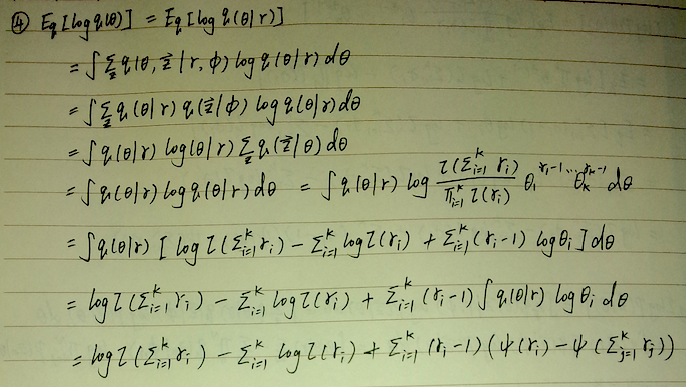 ④ Eq[log q(θ)] = Eq[log q(θ|r)]
= ∫ Σ_z q(θ, z⃗ | r, φ) log q(θ|r) dθ
= ∫ Σ_z q(θ|r) q(z⃗|φ) log q(θ|r) dθ
= ∫ q(θ|r) log(θ|r) Σ_z q(z⃗|θ) dθ
= ∫ q(θ|r) log q(θ|r) dθ = ∫ q(θ|r) log τ(Σ_{i=1}^k r_i) / Π_{i=1}^k τ(r_i) θ_1^{r_1-1} ... θ_k^{r_k-1} dθ
= ∫ q(θ|r) [ log τ(Σ_{i=1}^k r_i) - Σ_{i=1}^k log τ(r_i) + Σ_{i=1}^k (r_i-1) log θ_i ] dθ
= log τ(Σ_{i=1}^k r_i) - Σ_{i=1}^k log τ(r_i) + Σ_{i=1}^k (r_i-1) ∫ q(θ|r) log θ_i dθ
= log τ(Σ_{i=1}^k r_i) - Σ_{i=1}^k log τ(r_i) + Σ_{i=1}^k (r_i-1) (ψ(r_i) - ψ(Σ_{j=1}^k r_j))